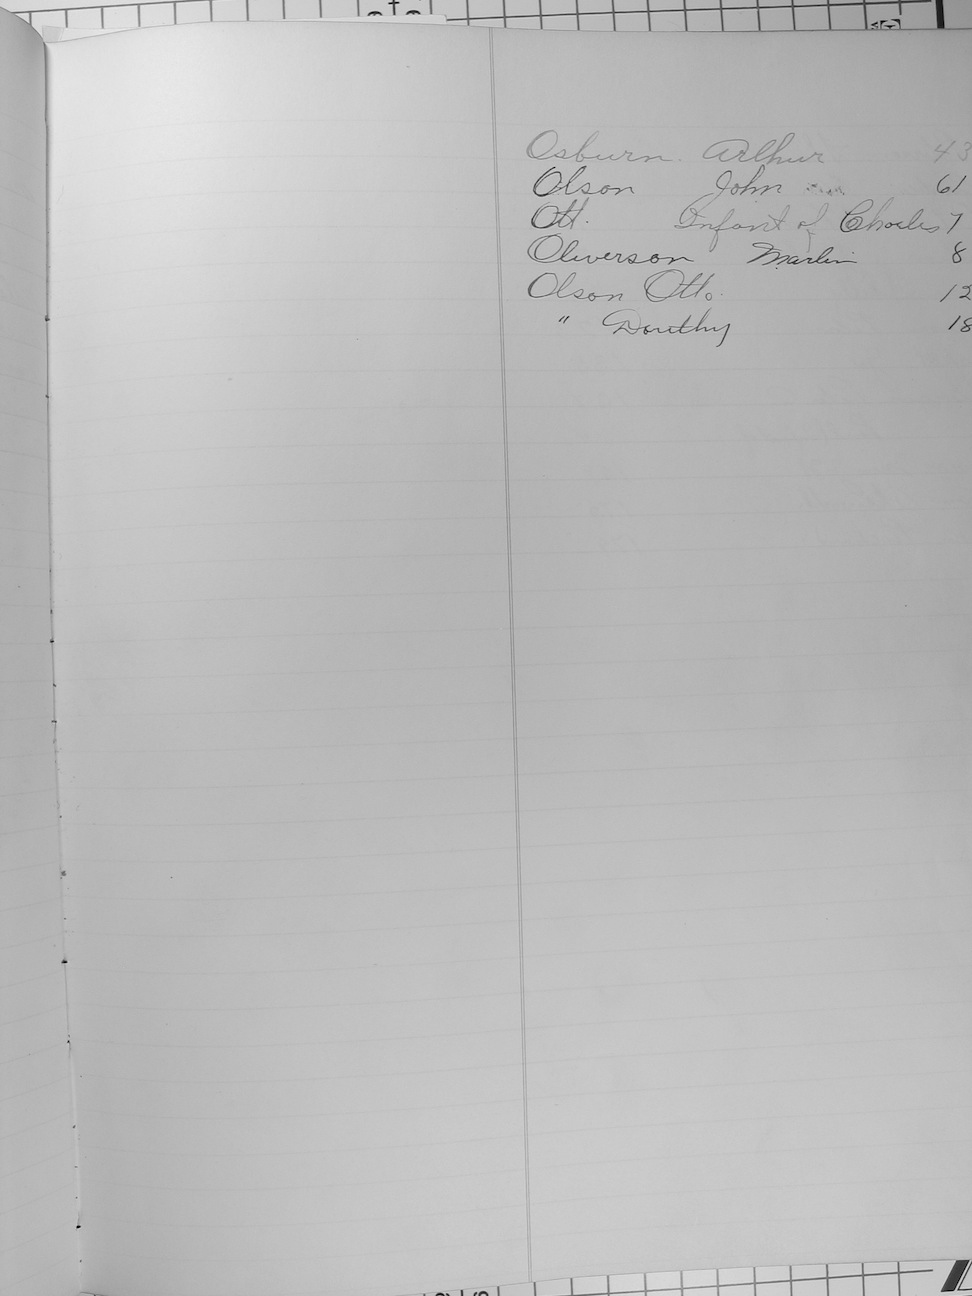 Osburn. Arthur 43
Olson John 61
Ott. Infant of Charles 7
Oliverson Marlin 8
Olson Otto. 12
" Douthy 18